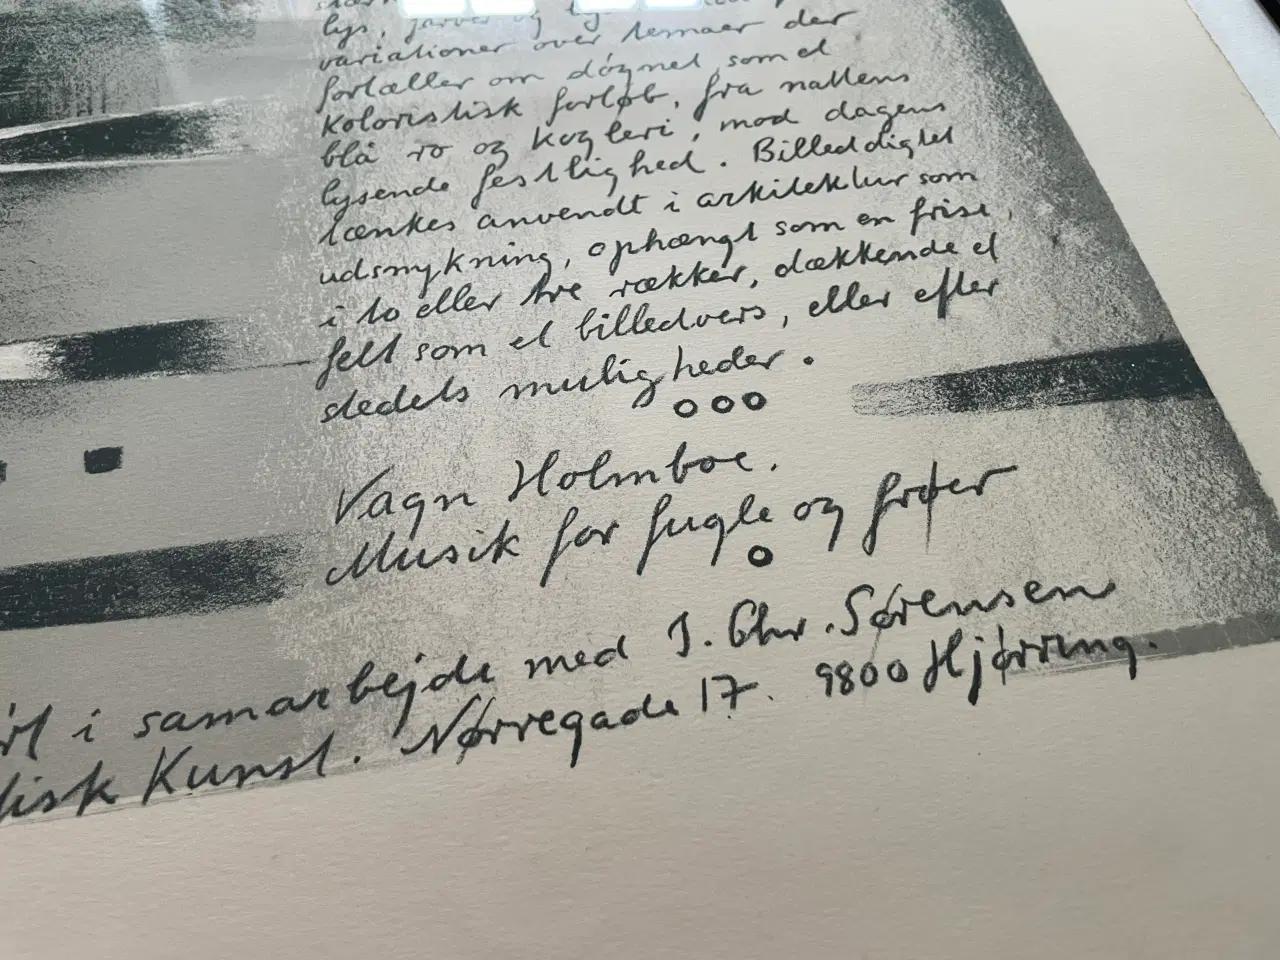 lys, farver og
variationer over temaer der
fortæller om døgnet som et
koloristisk forløb, fra nattens
blå ro og kogleri, mod dagens
lysende festlighed. Billeddigtet
tænkes anvendt i arkitektur som
udsmykning, ophængt som en frise,
i to eller tre rækker, dækkende et
felt som et billedvers, eller efter
stedets muligheder.
ooo
Vagn Holmboe.
Musik for fugle og frøer
o
i samarbejde med J. Chr. Sørensen
Kunst. Nørregade 17. 9800 Hjørring.